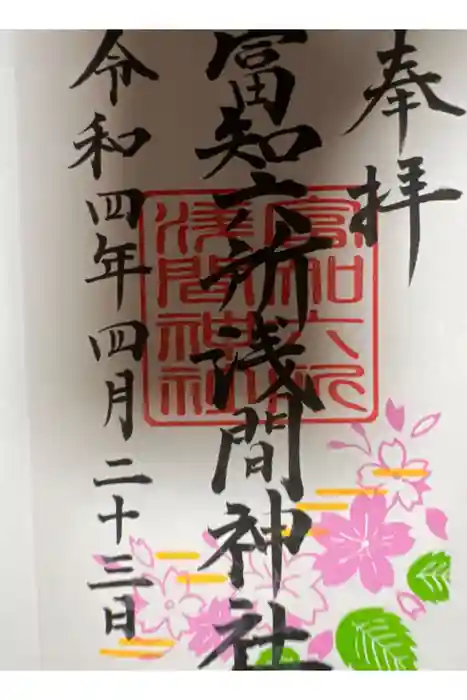 奉拝
富知六所浅間神社
富知六所
浅間神社
令和四年四月二十三日